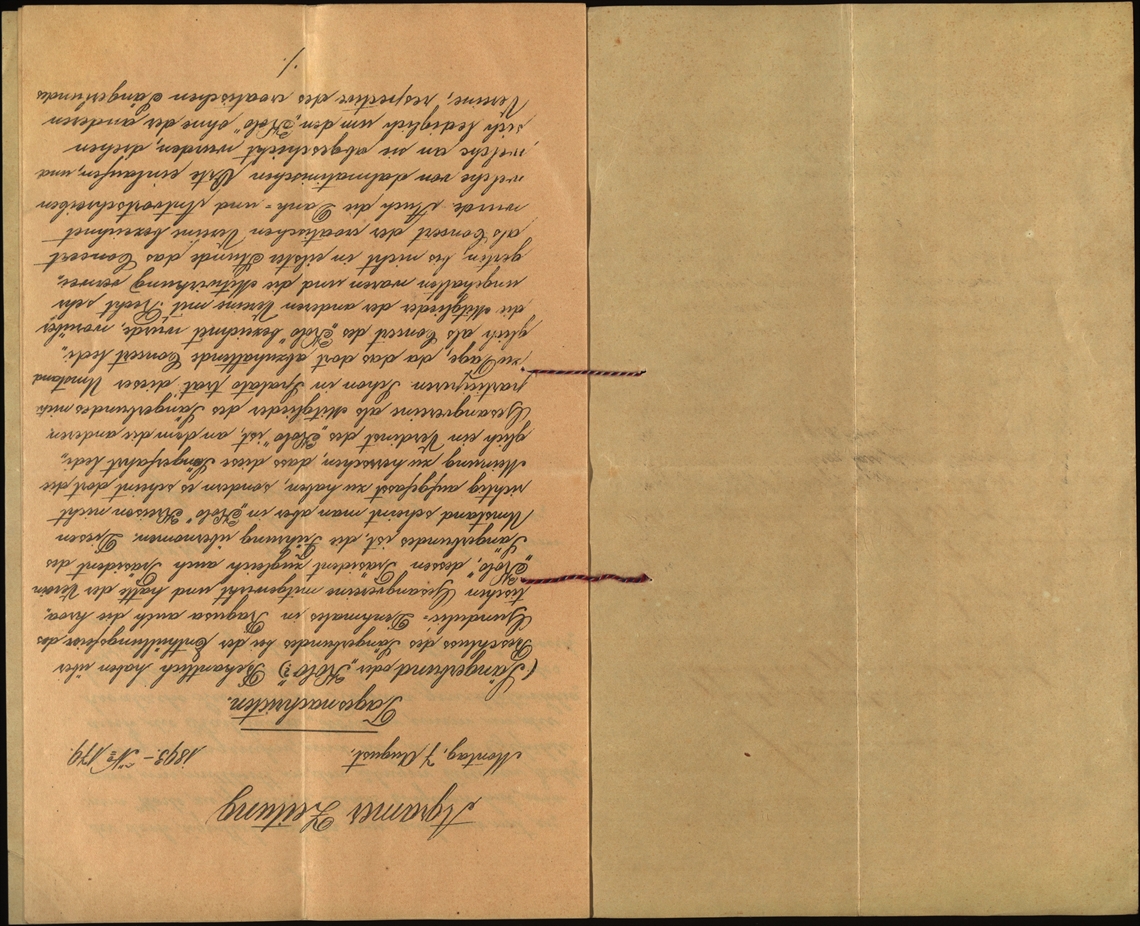 Agramer Zeitung
Montag, 7 August. 1893.- No 179.
Tagesnachrichten.
(Sängerbund oder „Kolo"?) Bekanntlich haben über
Beschluss des Sängerbundes bei der Enthüllungsfeier des
Gundulić-Denkmales in Ragusa auch die kroa„
tischen Gesangvereine mitgewirkt und hatte der Verein
„Kolo", dessen Präsident zugleich auch Präsident des
Sängerbundes ist, die Führung übernomen. Diesen
Umstand scheint man aber in „Kolo" Kreisen nicht
richtig aufgefasst zu haben, sondern es scheint dort die
Meinung zu herrschen, dass diese Sängerfahrt ledi„
glich ein Verdienst des „Kolo" ist, an dem die anderen
Gesangvereine als Mitglieder des Sängerbundes nich
participiren. Schon in Spalato trat dieser Umstand
zu Tage, da das dort abzuhaltende Concert ledi„
glich als Concert des „Kolo" bezeichnet wurde, worüber
die Mitglieder der anderen Vereine mit Recht sehr
ungehalten waren und die Mitwirkung verwei„
gerten, bis nicht in eilfter Stunde das Concert
als Concert der croatischen Vereine bezeichnet
wurde. Auch die Dank- und Antwortschreiben
welche von dalmatinischen Orte einlaufen, und
welche an sie abgeschickt wurden, drehen
sich lediglich um den „Kolo" ohne der anderen
Vereine, respective des croatischen Sängerbundes
./.